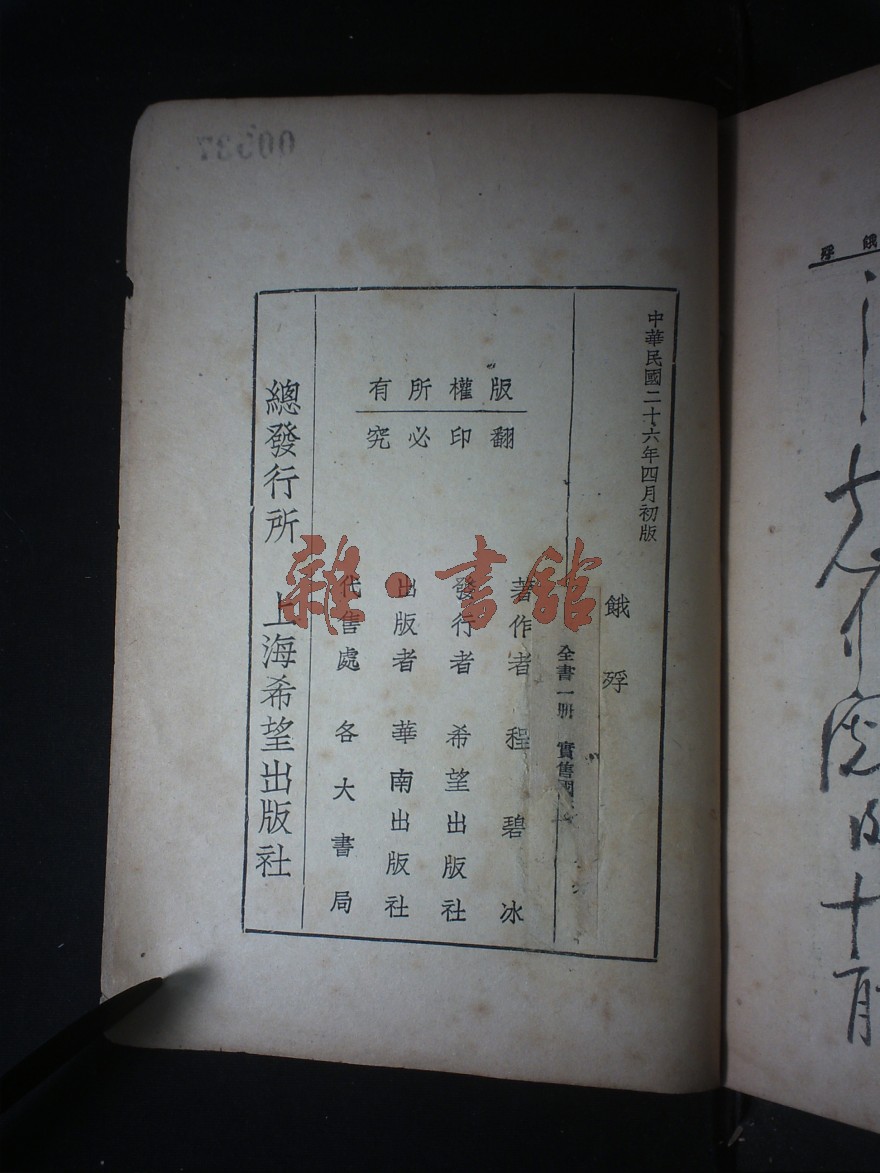 中華民國二十六年四月初版
餓殍
全書一冊 實售國
版權所有
翻印必究
著作者 程碧冰
發行者 希望出版社
出版者 華南出版社
代售處 各大書局
總發行所 上海希望出版社
雜·書館
餓殍